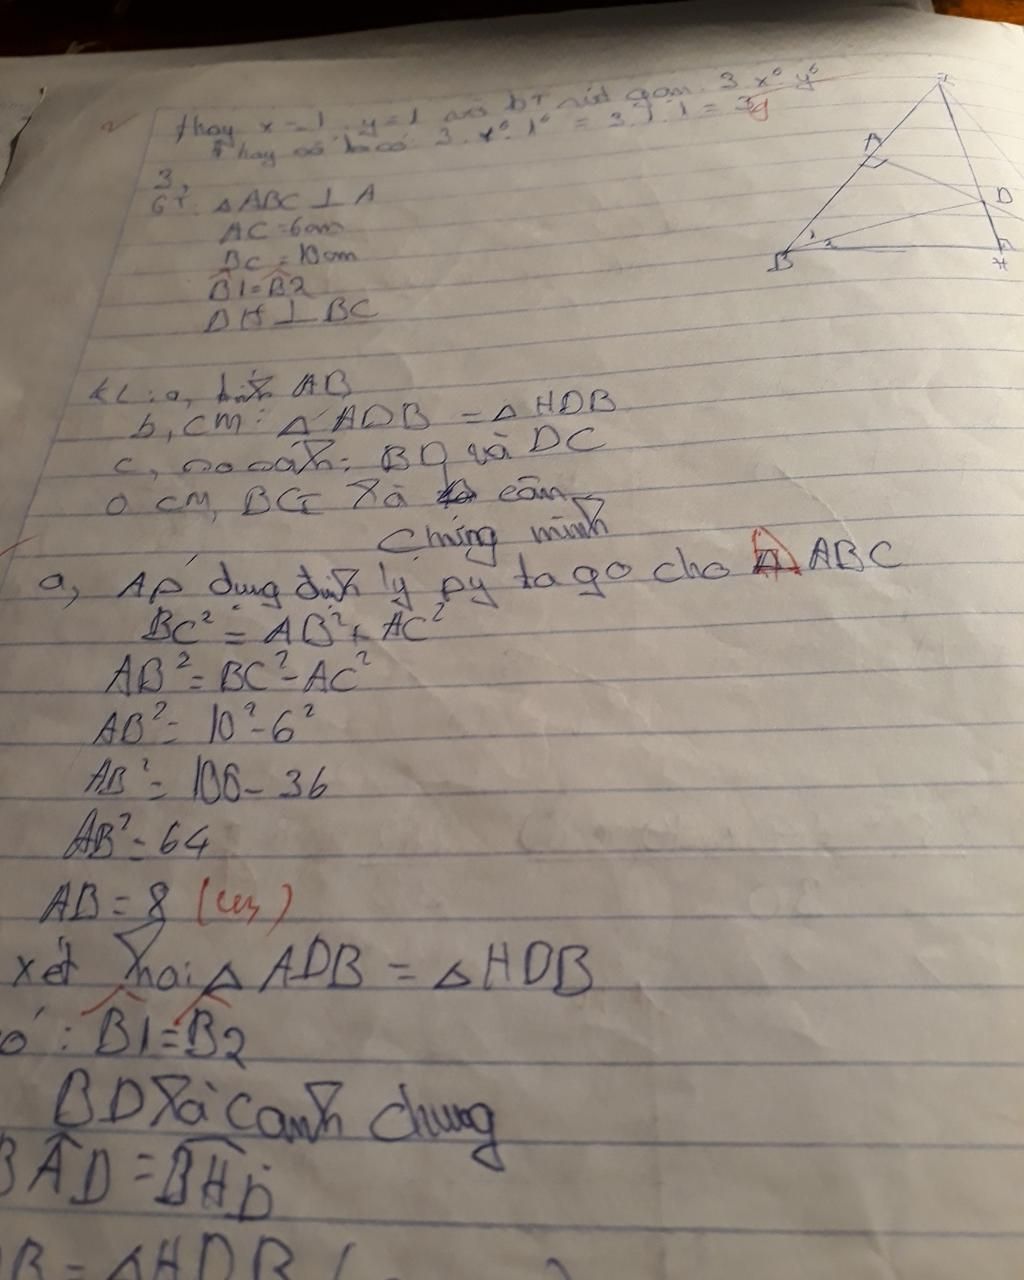 thay x = 1, y = 1 vào bT rút gọn 3 x⁶ y⁶
Thay có 3. 1⁶. 1⁶ = 3.1.1 = 3
3,
GT: △ABC ⊥ A
AC = 6cm
BC = 10cm
B1 = B2
DH ⊥ BC
KL: a, tính AB
b, cm: △ ADB = △ HDB
c, so sánh: BD và DC
cm, BC là cân
Chứng minh
a, Áp dụng định lý py ta go cho △ ABC
BC² = AB² + AC²
AB² = BC² - AC²
AB² = 10² - 6²
AB² = 100 - 36
AB² = 64
AB = 8 (cm)
xét hai △ ADB = △ HDB
B1 = B2
BD là cạnh chung
BAD = BHD
= △HDB
A
D
B
H
1
2